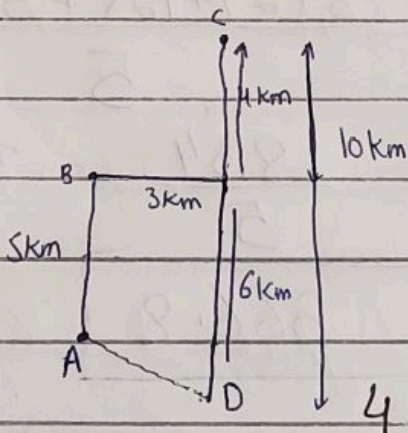 C
4km
10km
B
3km
5km
6km
A
D
4